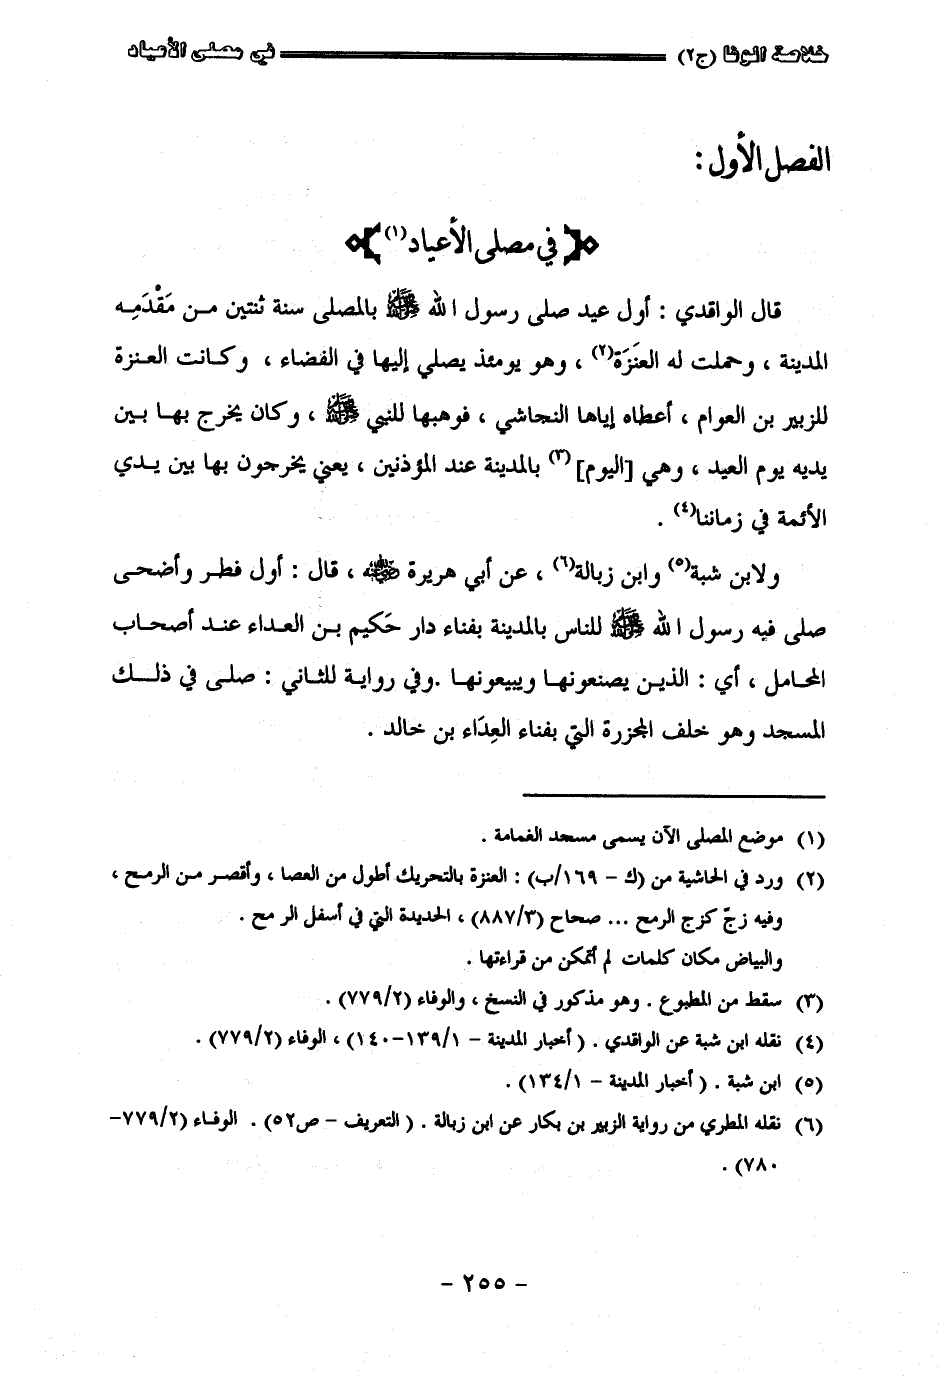 خلاصة الوفا (ج٢) في مصلى الأعياد
الفصل الأول :
في مصلى الأعياد(١)
قال الواقدي : أول عيد صلى رسول الله ﷺ بالمصلى سنة ثنتين من مَقْدَمِه
المدينة ، وحملت له العَنَزَة(٢) ، وهو يومئذ يصلي إليها في الفضاء ، وكانت العنزة
للزبير بن العوام ، أعطاه إياها النجاشي ، فوهبها للنبي ﷺ ، وكان يخرج بها بين
يديه يوم العيد ، وهي [اليوم](٣) بالمدينة عند المؤذنين ، يعني يخرجون بها بين يدي
الأئمة في زماننا(٤) .
ولابن شبة(٥) وابن زبالة(٦) ، عن أبي هريرة ﵁ ، قال : أول فطر وأضحى
صلى فيه رسول الله ﷺ للناس بالمدينة بفناء دار حَكيم بن العداء عند أصحاب
المحامل ، أي : الذين يصنعونها ويبيعونها .وفي رواية للثاني : صلى في ذلك
المسجد وهو خلف المجزرة التي بفناء العِدَاء بن خالد .
(١) موضع المصلى الآن يسمى مسجد الغمامة .
(٢) ورد في الحاشية من (ك – ١٦٩/ب) : العنزة بالتحريك أطول من العصا ، وأقصر من الرمح ،
وفيه زجّ كزج الرمح ... صحاح (٨٨٧/٣) ، الحديدة التي في أسفل الرمح .
والبياض مكان كلمات لم أتمكن من قراءتها .
(٣) سقط من المطبوع . وهو مذكور في النسخ ، والوفاء (٧٧٩/٢) .
(٤) نقله ابن شبة عن الواقدي . ( أخبار المدينة – ١٣٩/١-١٤٠) ، الوفاء (٧٧٩/٢) .
(٥) ابن شبة . ( أخبار المدينة – ١٣٤/١) .
(٦) نقله المطري من رواية الزبير بن بكار عن ابن زبالة . ( التعريف – ص٥٢) . الوفاء (٧٧٩/٢-
٧٨٠) .
- ٢٥٥ -